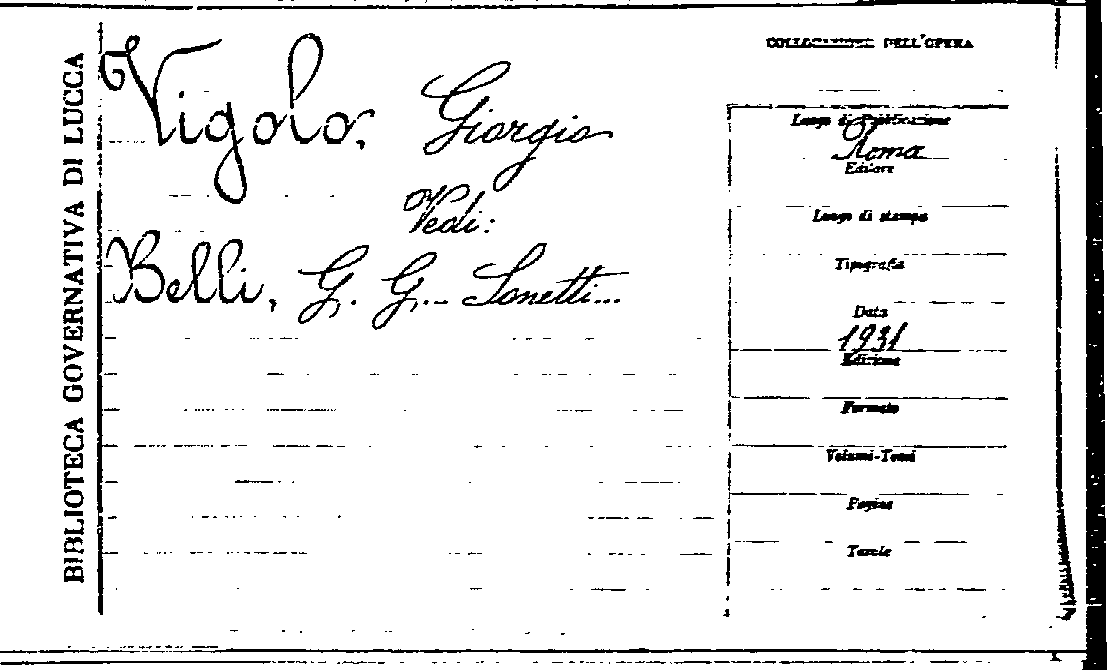 BIBLIOTECA GOVERNATIVA DI LUCCA
Vigolo, Giorgio
Vedi:
Belli, G. G... Sonetti...
COLLOCAZIONE DELL'OPERA
Luogo di Pubblicazione
Roma
Editore
Luogo di stampa
Tipografia
Data
1931
Edizione
Formato
Volumi-Tomi
Pagine
Tavole